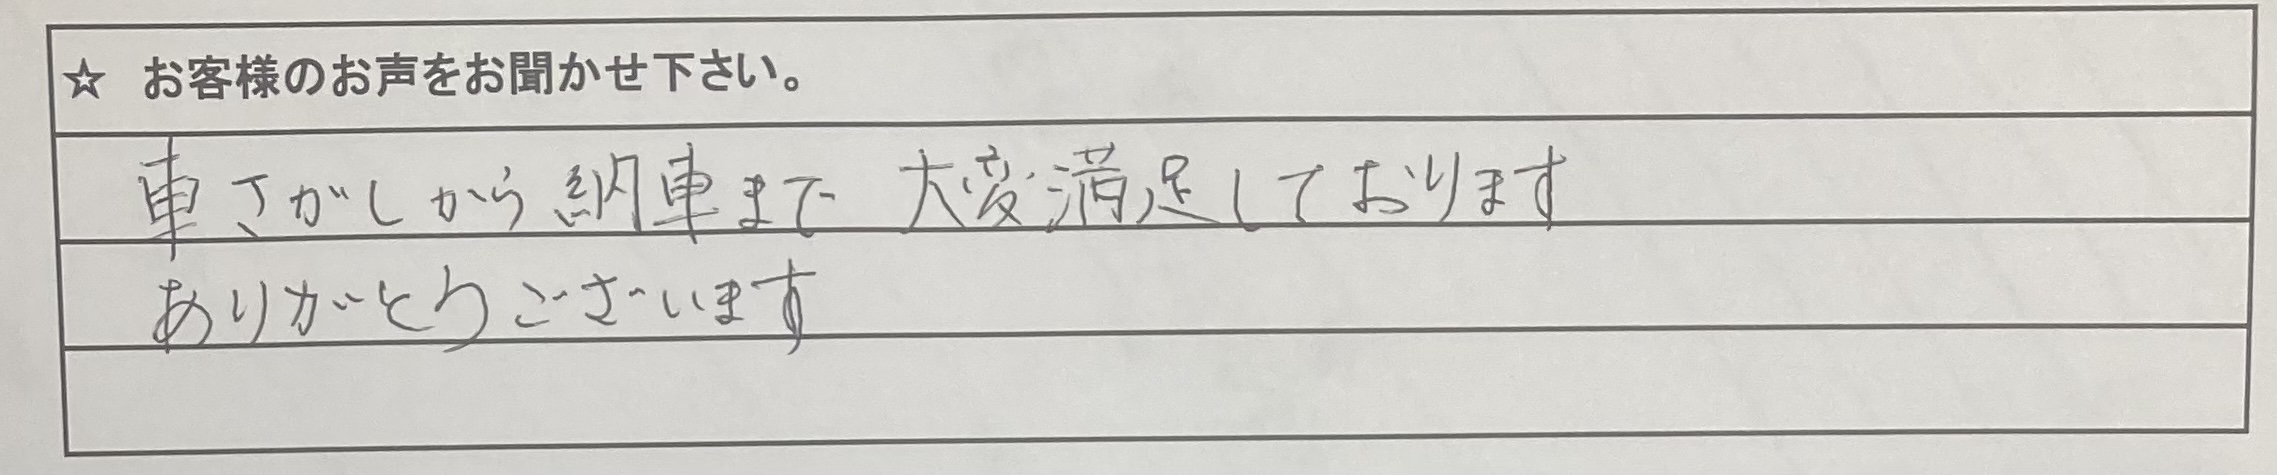 ☆ お客様のお声をお聞かせ下さい。
車さがしから納車まで 大変満足しております
ありがとうございます